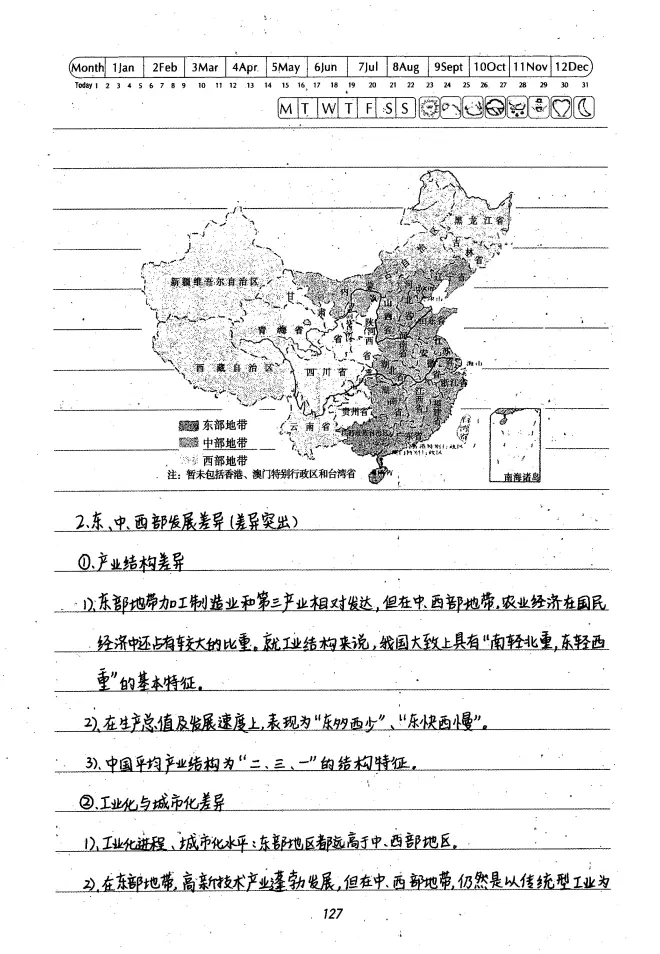 Month 1Jan 2Feb 3Mar 4Apr 5May 6Jun 7Jul 8Aug 9Sept 10Oct 11Nov 12Dec
Today 1 2 3 4 5 6 7 8 9 10 11 12 13 14 15 16 17 18 19 20 21 22 23 24 25 26 27 28 29 30 31
M T W T F S S
黑龙江省
吉林省
辽宁省
新疆维吾尔自治区
内蒙古
甘肃省
青海省
山西省
河北省
山东省
陕西省
河南省
西藏自治区
四川省
湖北省
安徽省
江苏
浙江省
湖南省
江西省
福建省
贵州省
云南省
广东省
东部地带
中部地带
西部地带
注：暂未包括香港、澳门特别行政区和台湾省
南海诸岛
2.东、中、西部发展差异(差异突出)
①.产业结构差异
1).东部地带加工制造业和第三产业相对发达,但在中、西部地带,农业经济在国民
经济中还占有较大的比重。就工业结构来说,我国大致上具有“南轻北重,东轻西
重”的基本特征。
2).在生产总值及发展速度上,表现为“东多西少”、“东快西慢”。
3).中国平均产业结构为“二、三、一”的结构特征。
②.工业化与城市化差异
1).工业化进程、城市化水平:东部地区都远高于中、西部地区。
2).在东部地带,高新技术产业蓬勃发展,但在中、西部地带,仍然是以传统型工业为
127